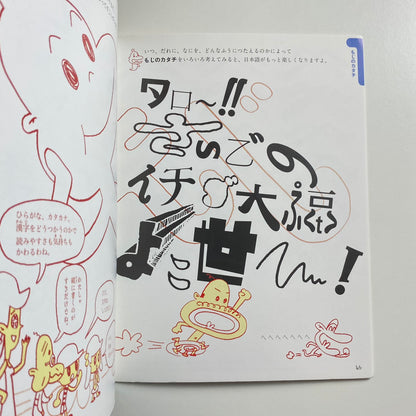 いつ、だれに、なにを、どんなふうにつたえるのかによって
もじのカタチをいろいろ考えてみると、日本語がもっと楽しくなりますよ。
もじのカタチ
タロ〜!!
イチゴ大福
よこ世〜!
ひらがな、カタカナ、
漢字をどうつかうのかで
読みやすさも気持ちも
かわるわね。